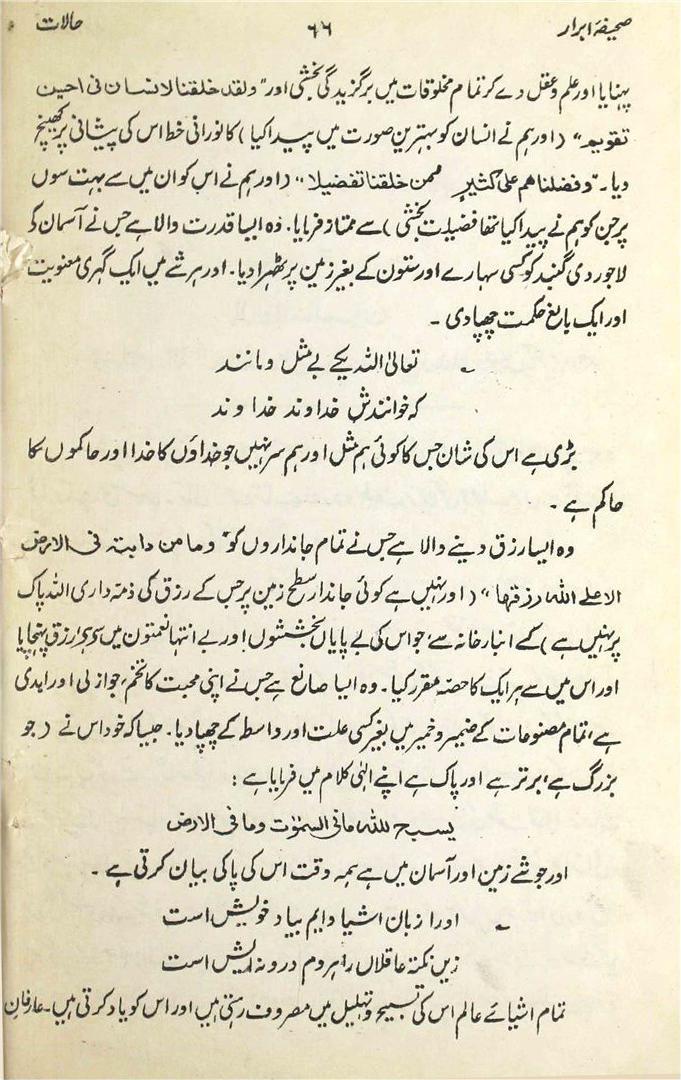 صحیفۂ ابرار ۶۶ حالات
پہنایا اور علم و عقل دے کر تمام مخلوقات میں برگزیدگی بخشی اور "ولقد خلقنا الانسان فی احسن
تقویم" (اور ہم نے انسان کو بہترین صورت میں پیدا کیا) کا نورانی خط اس کی پیشانی پر کھینچ
دیا۔ "وفضلناھم علیٰ کثیر ممن خلقنا تفضیلا" (اور ہم نے اس کو ان میں سے بہت سوں
پر جن کو ہم نے پیدا کیا تھا فضیلت بخشی) سے ممتاز فرمایا۔ وہ ایسا قدرت والا ہے جس نے آسمان کی
لاجوردی گنبد کو کسی سہارے اور ستون کے بغیر زمین پر ٹھہرا دیا۔ اور ہر شے میں ایک گہری معنویت
اور ایک بالغ حکمت چھپا دی۔
تعالیٰ اللہ یکے بے مثل و مانند
کہ خوانندش خداوند خداوند
بڑی ہے اس کی شان جس کا کوئی ہم مثل اور ہم سر نہیں جو خداؤں کا خدا اور حاکموں کا
حاکم ہے۔
وہ ایسا رزق دینے والا ہے جس نے تمام جانداروں کو "وما من دابتہ فی الارض
الا علے اللہ رزقھا" (اور نہیں ہے کوئی جاندار سطح زمین پر جس کے رزق کی ذمہ داری اللہ پاک
پر نہیں ہے) کے انبار خانہ سے، جو اس کی بے پایاں بخششوں اور بے انتہا نعمتوں میں سے ہے، رزق پہنچایا
اور اس میں سے ہر ایک کا حصّہ مقرر کیا۔ وہ ایسا صانع ہے جس نے اپنی محبت کا تخم، جو ازلی اور ابدی
ہے، تمام مصنوعات کے ضمیر و خمیر میں بغیر کسی علت اور واسطہ کے چھپا دیا۔ جیسا کہ خود اس نے (جو
بزرگ ہے، برتر ہے اور پاک ہے اپنے الٰہی کلام میں فرمایا ہے:
یسبح للہ مافی السمٰوٰت وما فی الارض
اور جو شے زمین اور آسمان میں ہے ہمہ وقت اس کی پاکی بیان کرتی ہے۔
او را زبان اشیا دایم بیاد خویش است
زیں نکتہ عاقلاں را ہر دم درونہ ریش است
تمام اشیائے عالم اس کی تسبیح و تہلیل میں مصروف رہتی ہیں اور اس کو یاد کرتی ہیں۔ عارفانِ